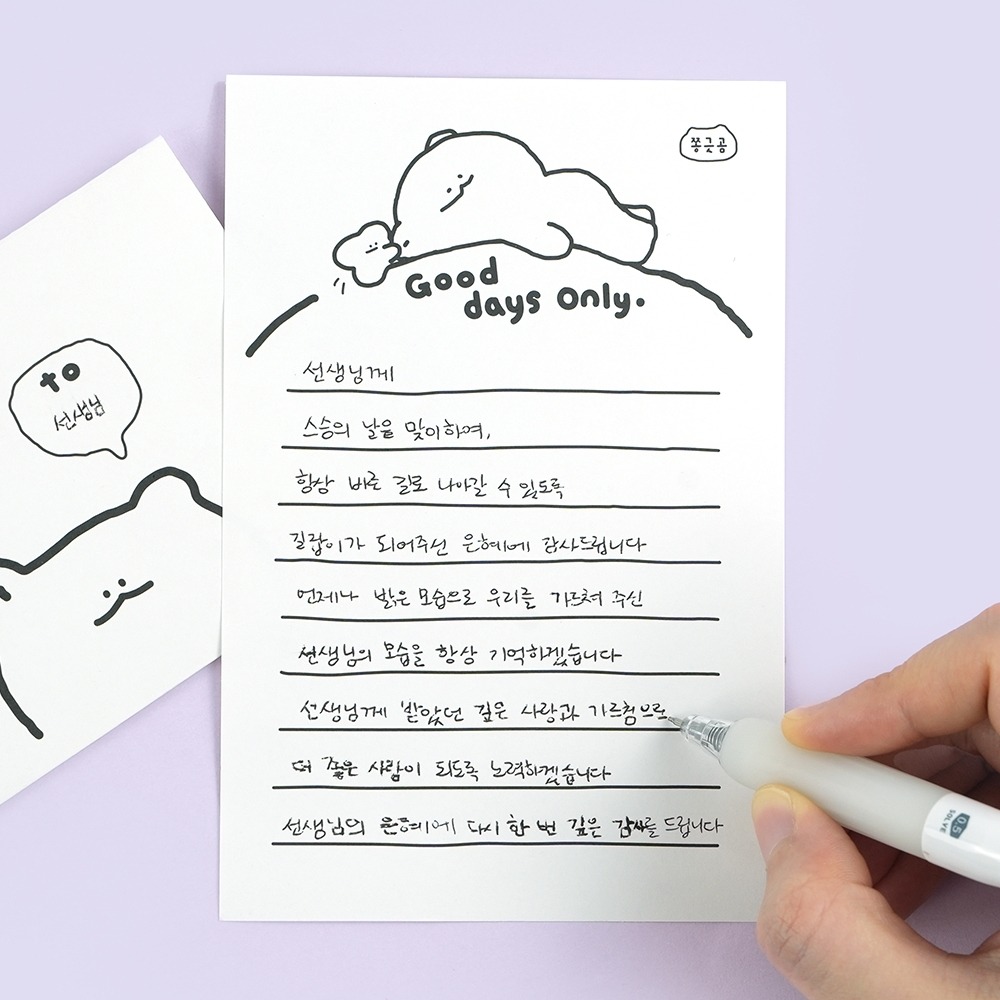 쫑긋곰
Good
days only.
선생님께
스승의 날을 맞이하여,
항상 바른 길로 나아갈 수 있도록
길잡이가 되어주신 은혜에 감사드립니다
언제나 밝은 모습으로 우리를 가르쳐 주신
선생님의 모습을 항상 기억하겠습니다
선생님께 받았던 깊은 사랑과 가르침으로
더 좋은 사람이 되도록 노력하겠습니다
선생님의 은혜에 다시 한 번 깊은 감사를 드립니다
to
선생님
0.5
SOLVE